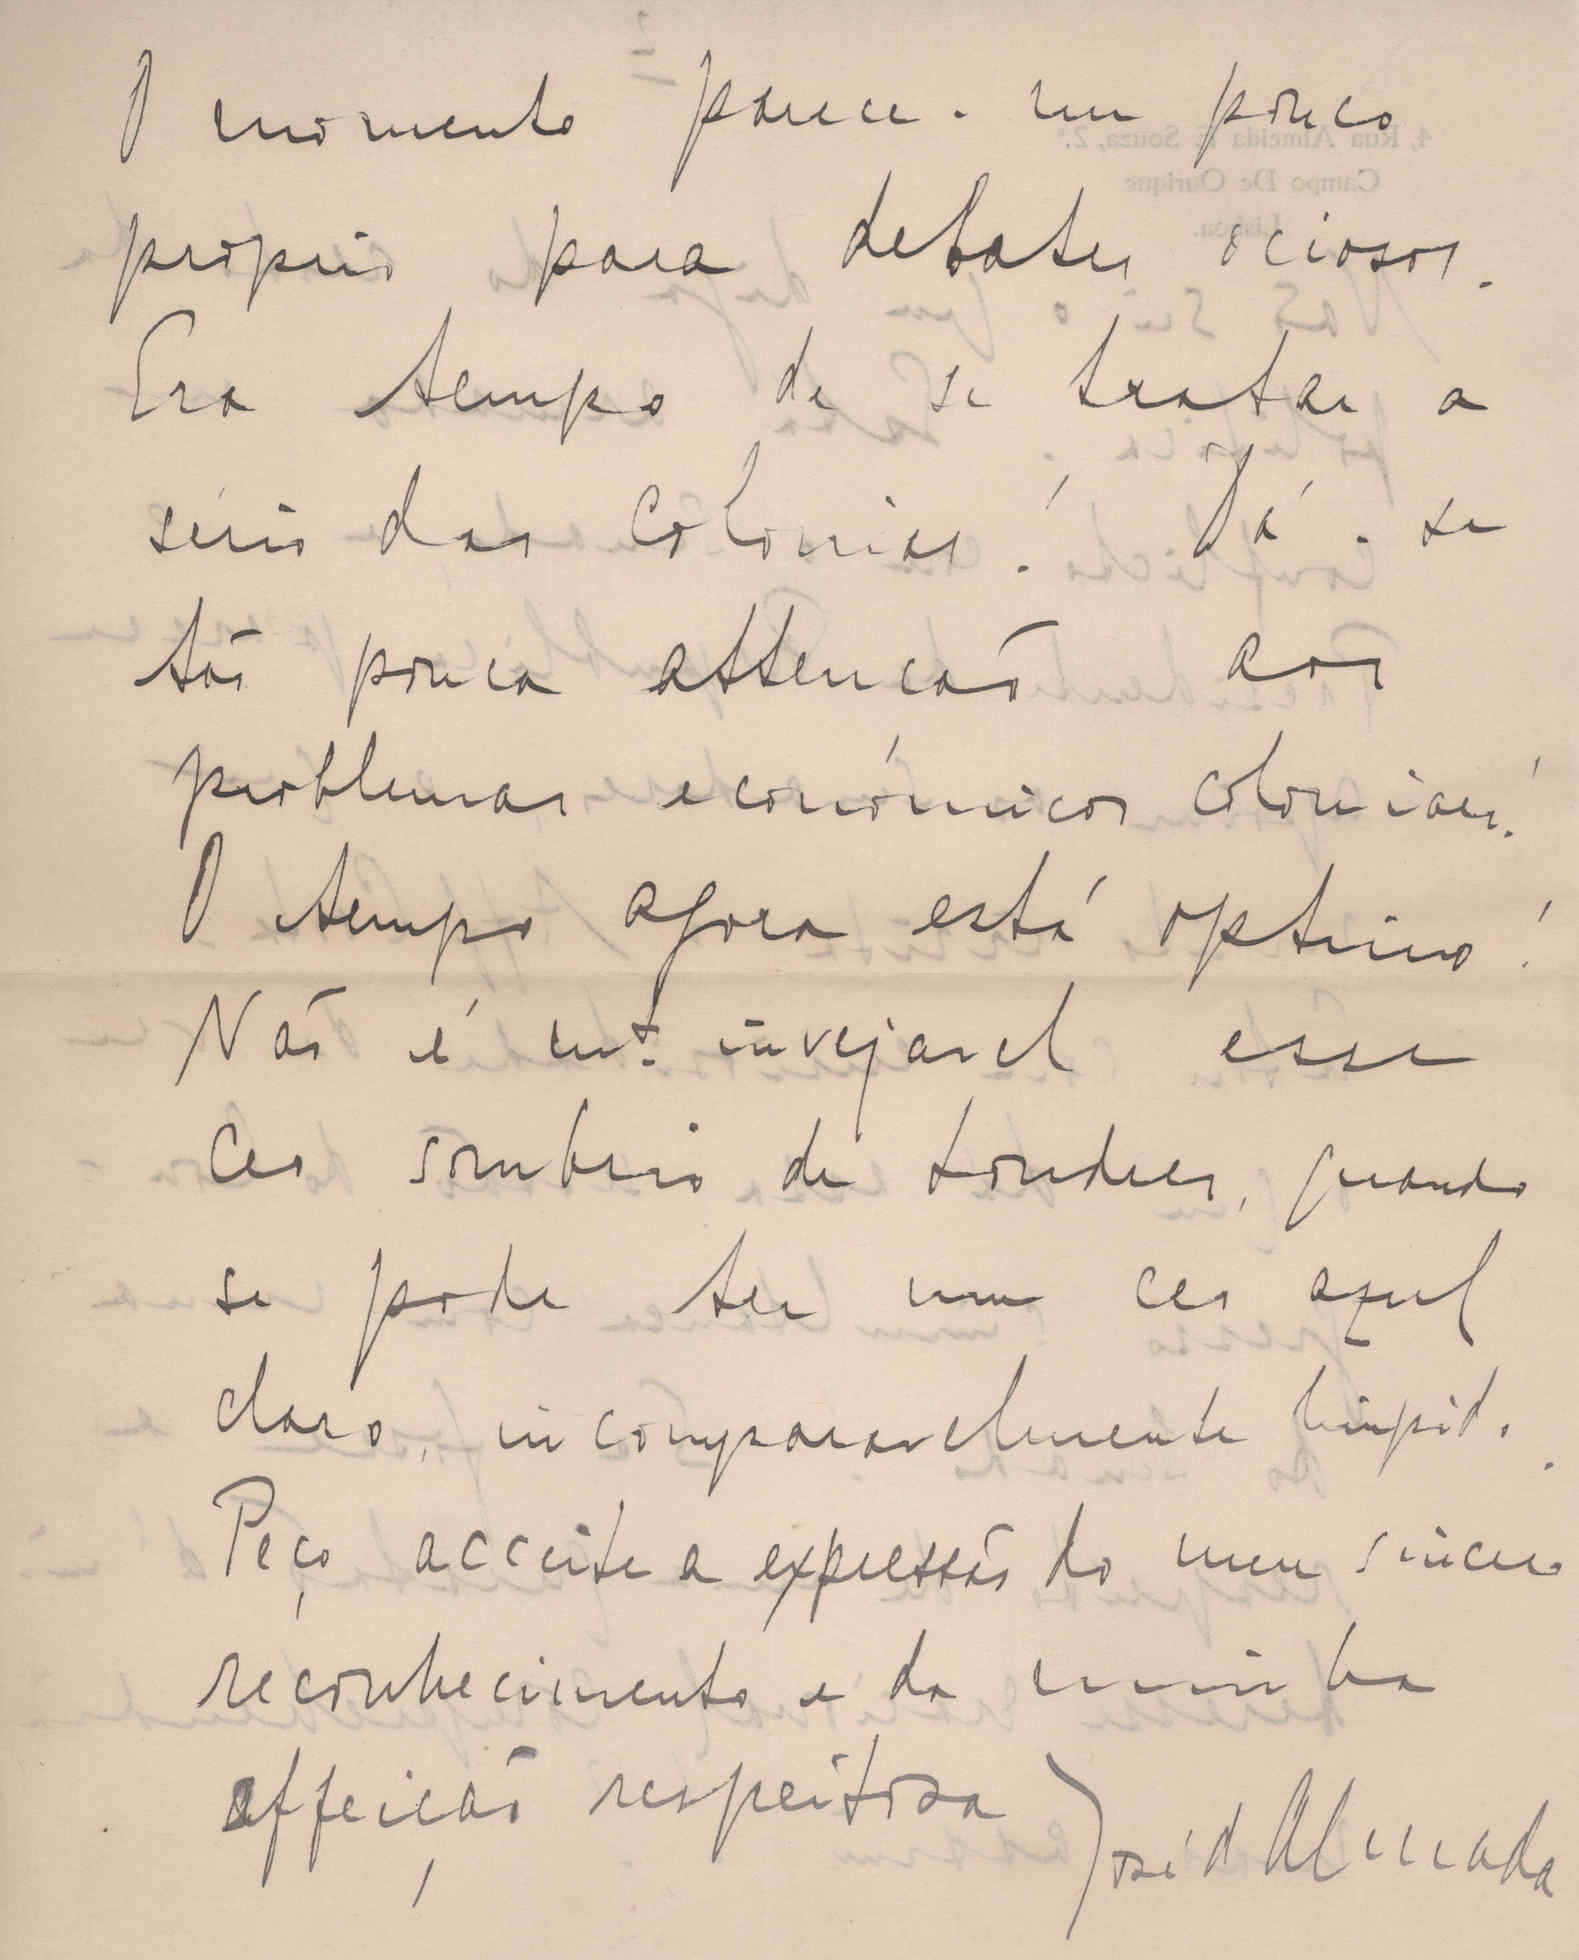 O momento parece-me pouco
proprio para debates ociosos.
Era tempo de se tratar a
sério das Colonias! Dá-se
tão pouca attencão aos
problemas económicos coloniaes!
O tempo agora está optimo!
Não é mt. invejavel esse
Ceo sombrio de Londres, quando
se pode ter um ceo azul
claro, incomparavelmente limpido.
Peço acceite a expressão do meu sincero
reconhecimento e da minha
affeição respeitosa José d'Almada
4, Rua Almeida E Souza, 2.º
Campo De Ourique
Lisboa.